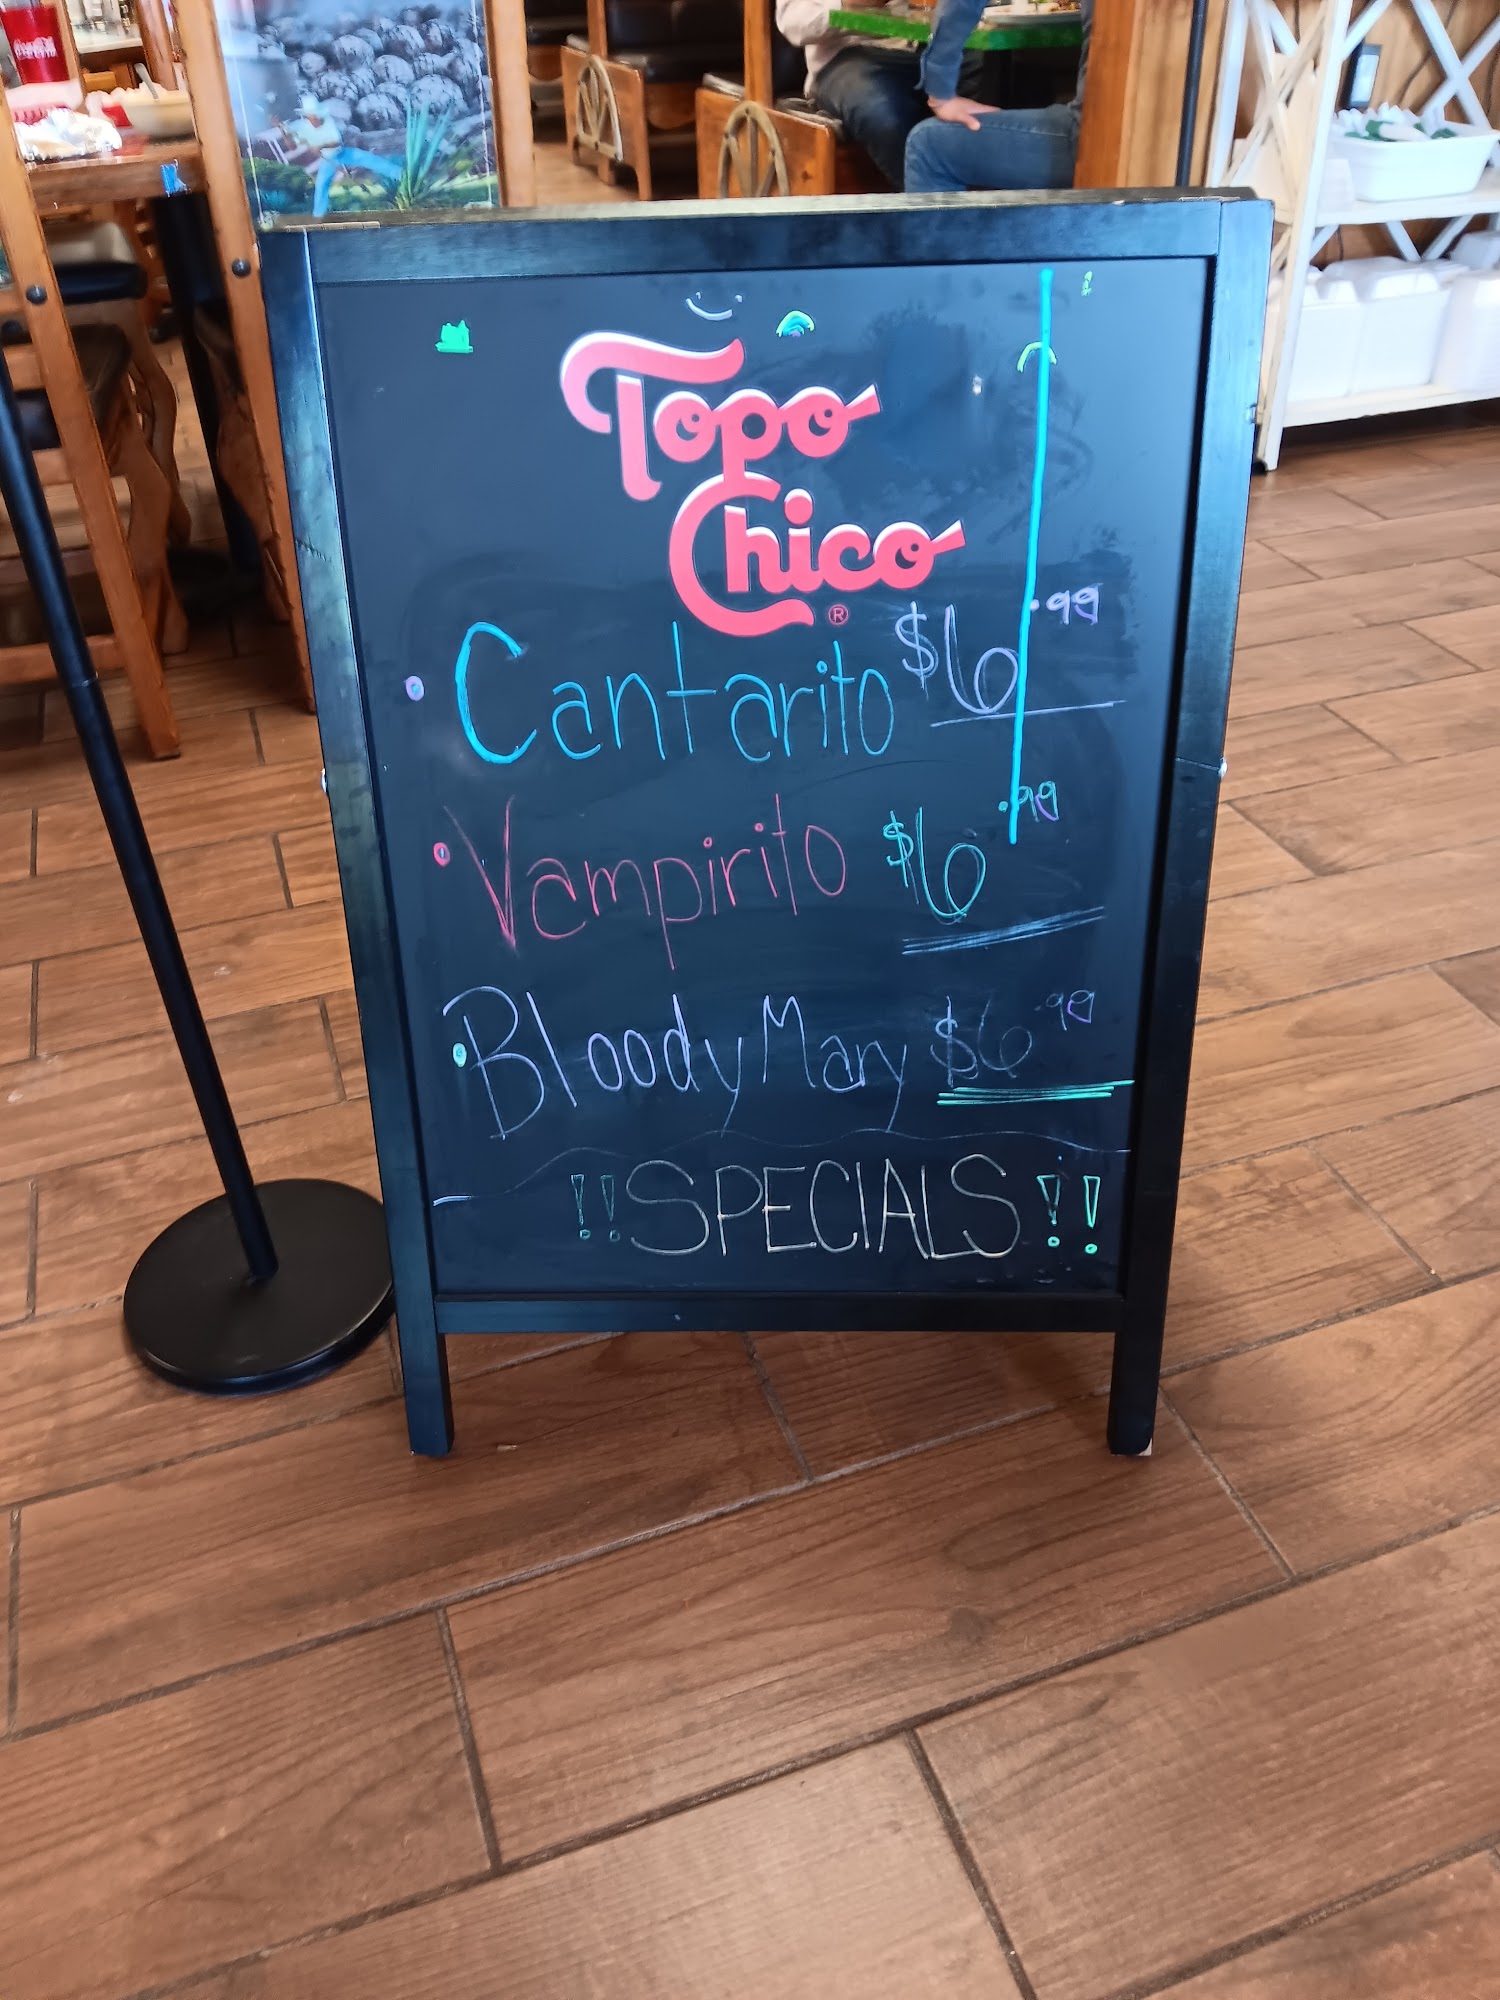 Topo
Chico®
Cantarito $6.99
Vampirito $6.99
Bloody Mary $6.99
!!SPECIALS!!